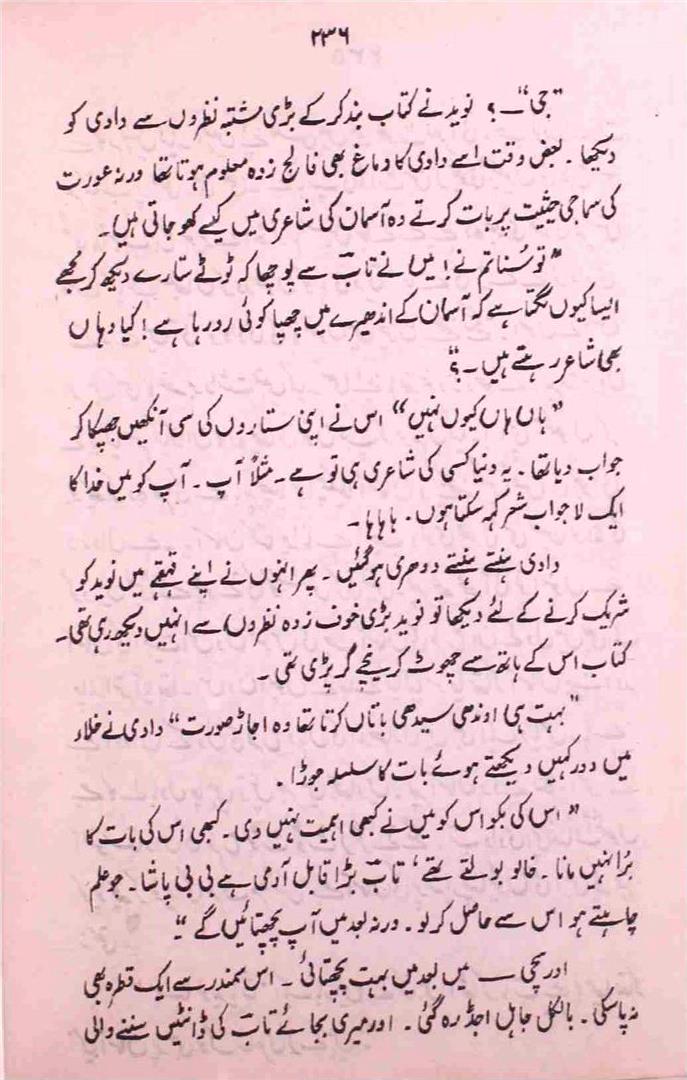 ۲۳۶
”جی“ــ؟ نوید نے کتاب بند کر کے بڑی مشتبہ نظروں سے دادی کو
دیکھا۔ بعض وقت اسے دادی کا دماغ بھی فالج زدہ معلوم ہوتا تھا ورنہ عورت
کی سماجی حیثیت پر بات کرتے وہ آسمان کی شاعری میں کیسے کھو جاتی ہیں۔
”تو سُنا تم نے! میں نے تابؔ سے پوچھا کہ ٹوٹے ستارے دیکھ کر مجھے
ایسا کیوں لگتا ہے کہ آسمان کے اندھیرے میں چھپا کوئی رو رہا ہے! کیا وہاں
بھی شاعر رہتے ہیں۔؟“
”ہاں ہاں کیوں نہیں“ اس نے اپنی ستاروں کی سی آنکھیں جھپکا کر
جواب دیا تھا۔ یہ دنیا کسی کی شاعری ہی تو ہے۔ مثلاً آپ۔ آپ کو میں خدا کا
ایک لاجواب شعر کہہ سکتا ہوں۔ ہاہاہا۔
دادی ہنستے ہنستے دوہری ہو گئیں۔ پھر انہوں نے اپنے قہقہے میں نوید کو
شریک کرنے کے لئے دیکھا تو نوید بڑی خوف زدہ نظروں سے انہیں دیکھ رہی تھی۔
کتاب اس کے ہاتھ سے چھوٹ کر نیچے گر پڑی تھی۔
”بہت ہی اوندھی سیدھی باتاں کرتا تھا وہ اجاڑ صورت“ دادی نے خلاء
میں دور کہیں دیکھتے ہوئے بات کا سلسلہ جوڑا۔
”اس کی بکواس کو میں نے کبھی اہمیت نہیں دی۔ کبھی اس کی بات کا
بُرا نہیں مانا۔ خالو بولتے تھے ‘ تابؔ بڑا قابل آدمی ہے بی بی پاشا۔ جو علم
چاہتے ہو اس سے حاصل کر لو۔ ورنہ بعد میں آپ پچھتائیں گے“۔
اور بچی ــ میں بعد میں بہت پچھتائی۔ اس سمندر سے ایک قطرہ بھی
نہ پا سکی۔ بالکل جاہل اجڈ رہ گئی۔ اور میری بجائے تابؔ کی ڈانٹیں سننے والی